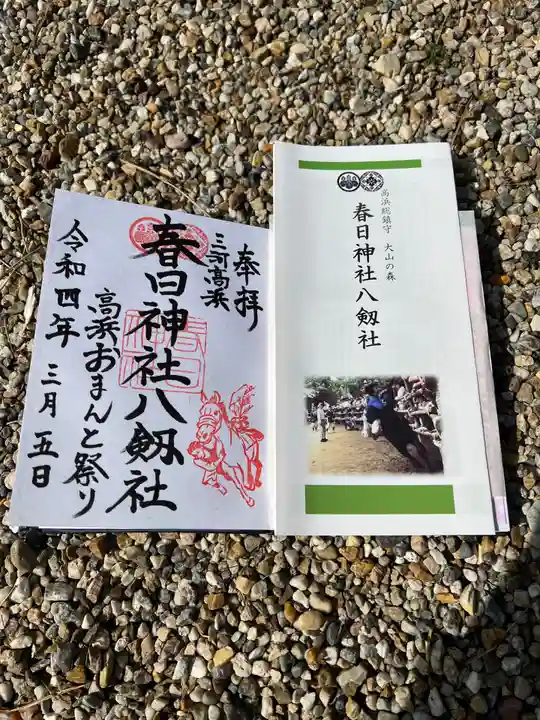 奉拝
三河高浜
春日神社八剱社
高浜おまんと祭り
令和四年 三月 五日
高浜総鎮守 大山の森
春日神社八剱社